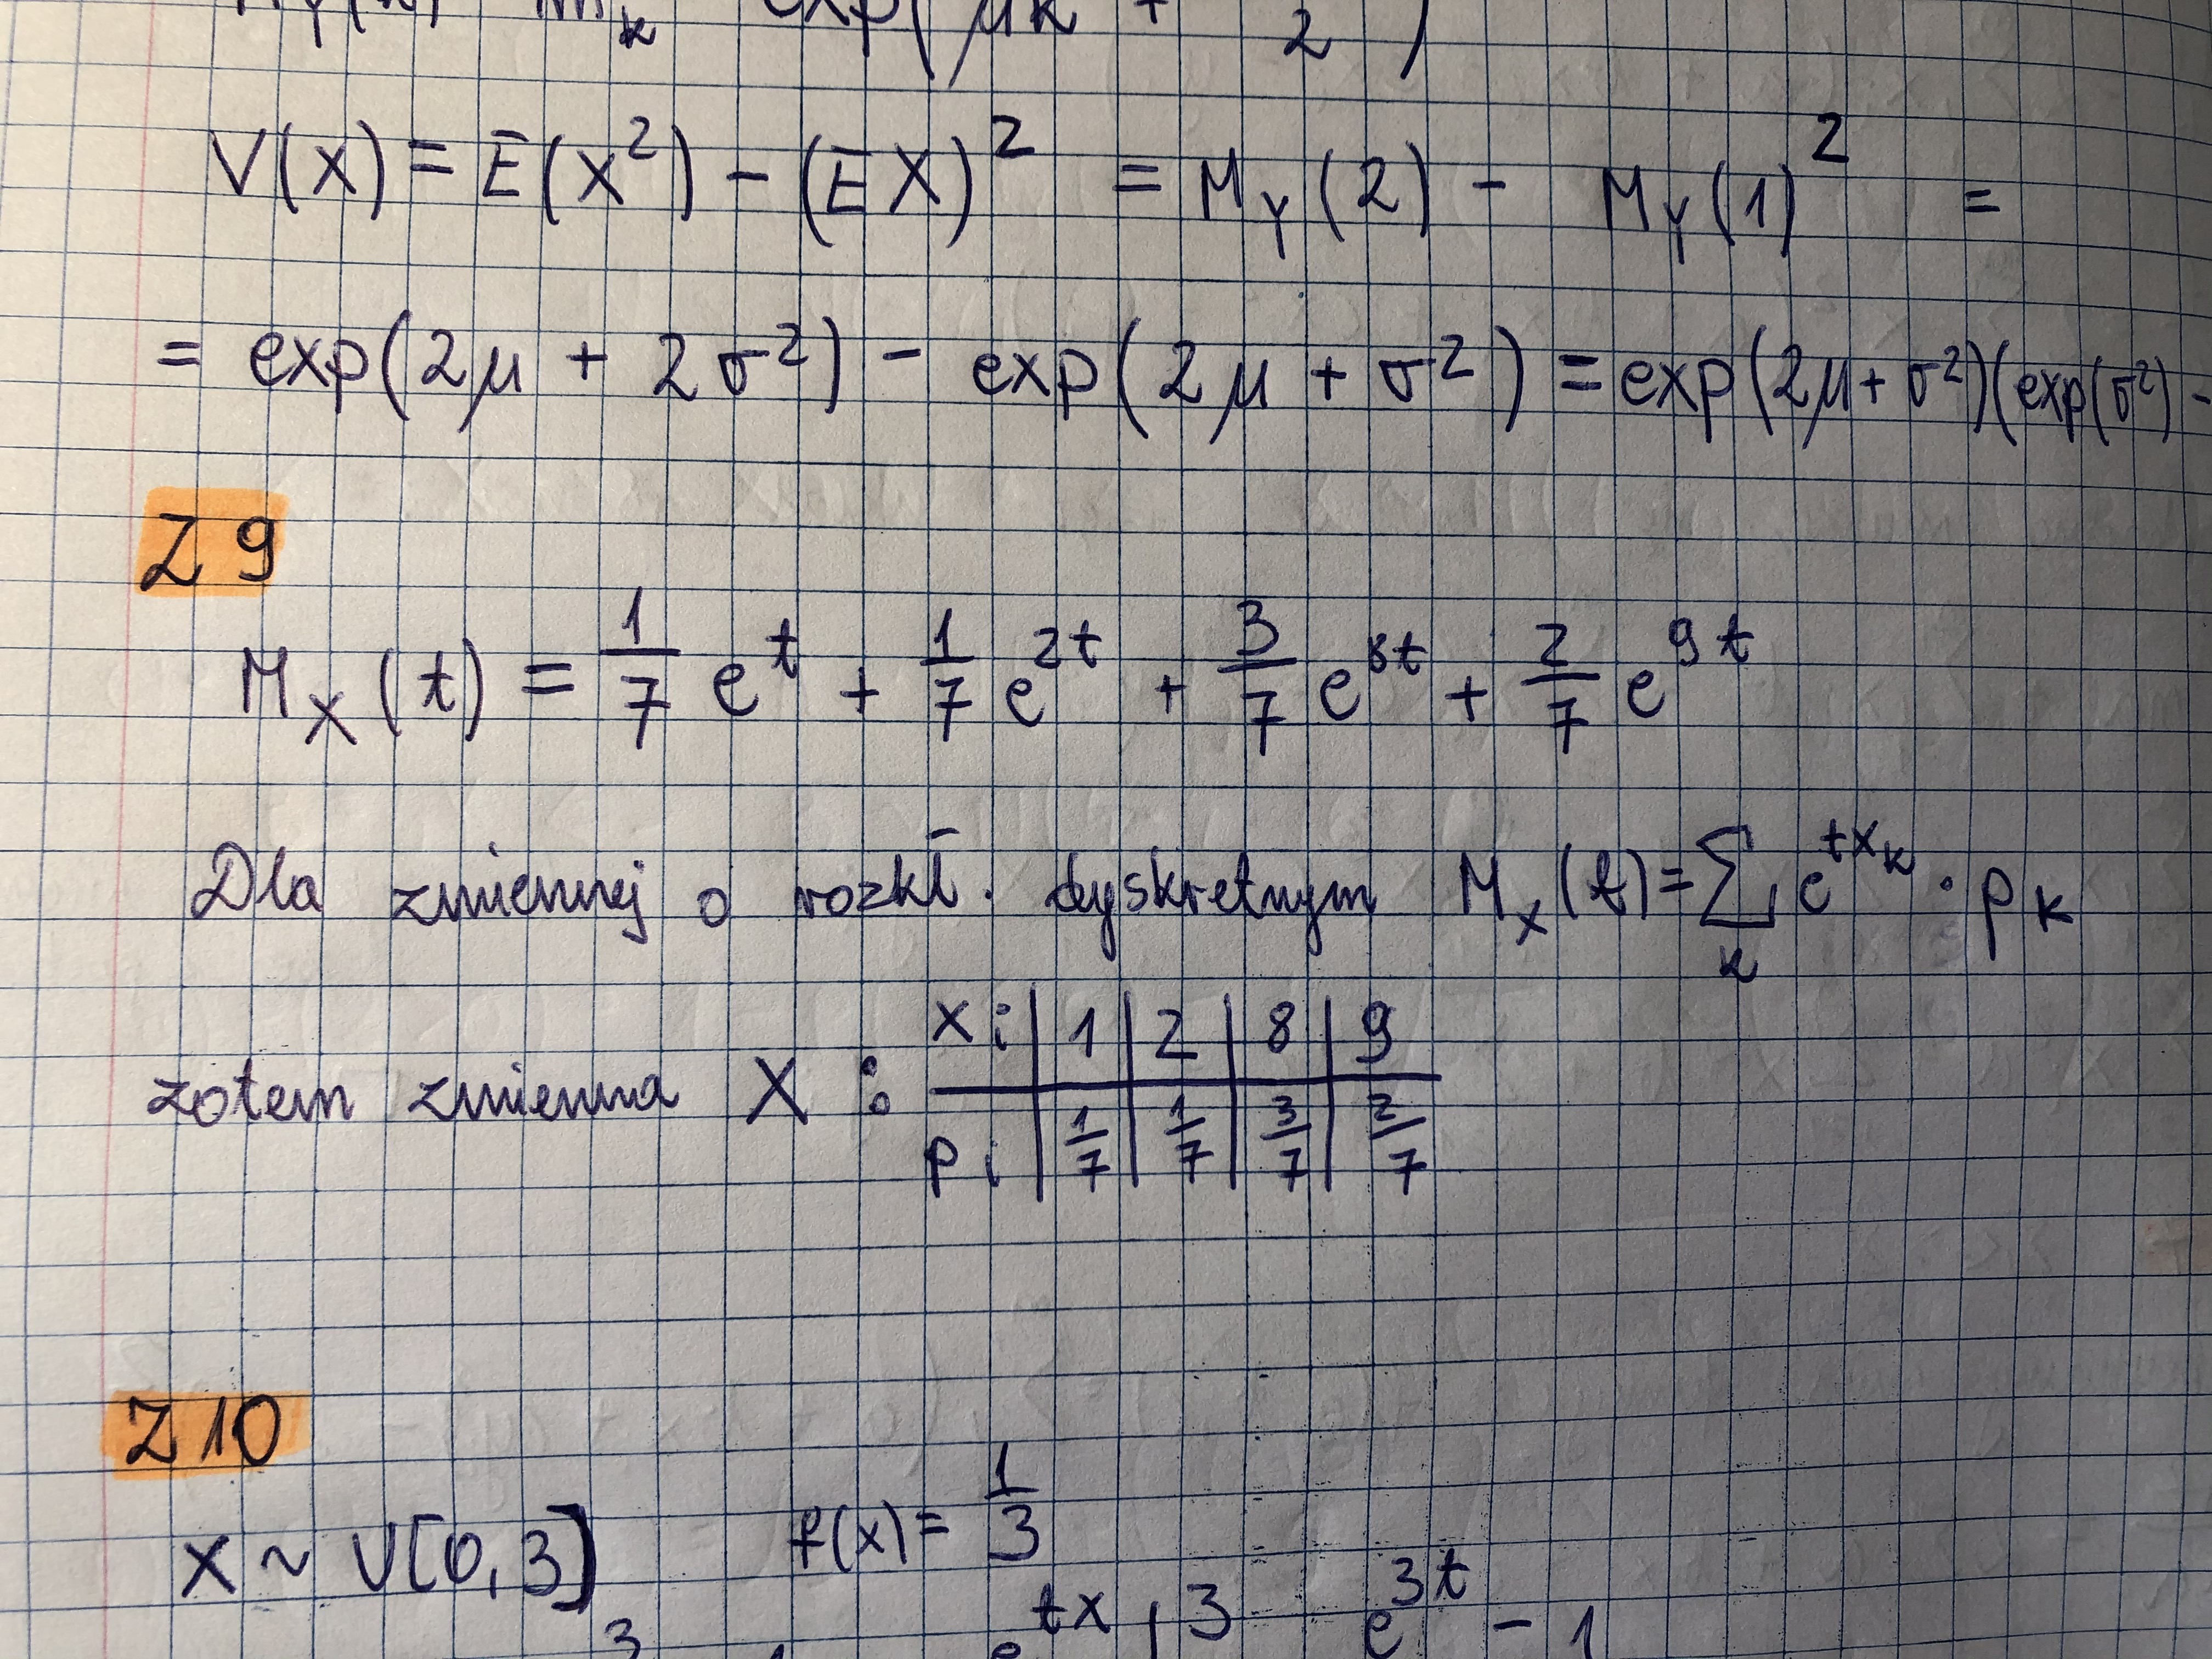 V(X) = E(X²) - (EX)² = M_Y(2) - M_Y(1)² =
= exp(2μ + 2σ²) - exp(2μ + σ²) = exp(2μ + σ²)(exp(σ²) -
Z 9
M_X(t) = 1/7 e^t + 1/7 e^{2t} + 3/7 e^{8t} + 2/7 e^{9t}
Dla zmiennej o rozkł. dyskretnym M_X(t) = Σ_k e^{tx_k} · p_k
zatem zmienna X : x_i | 1 | 2 | 8 | 9
p_i | 1/7 | 1/7 | 3/7 | 2/7
Z 10
X ~ U[0,3] f(x) = 1/3
e^{tx} | 3 e^{3t} - 1